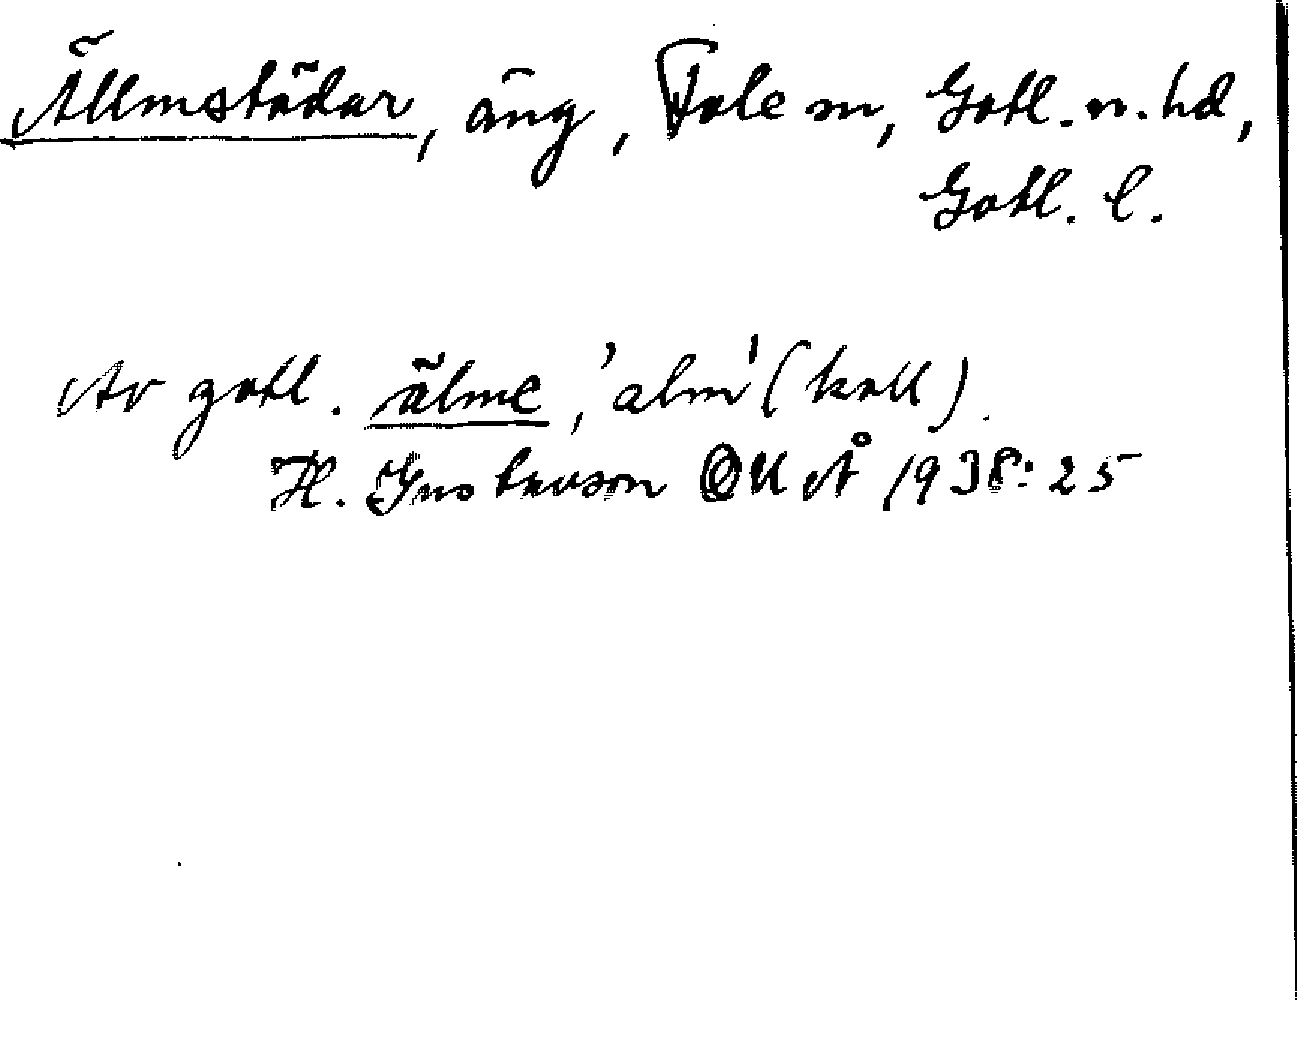 Ällmstädar, äng, Fole sn, Gotl. n. hd,
Gotl. l.
Av gotl. älme, 'alm' (koll).
H. Gustavson OUÅ 1938:25